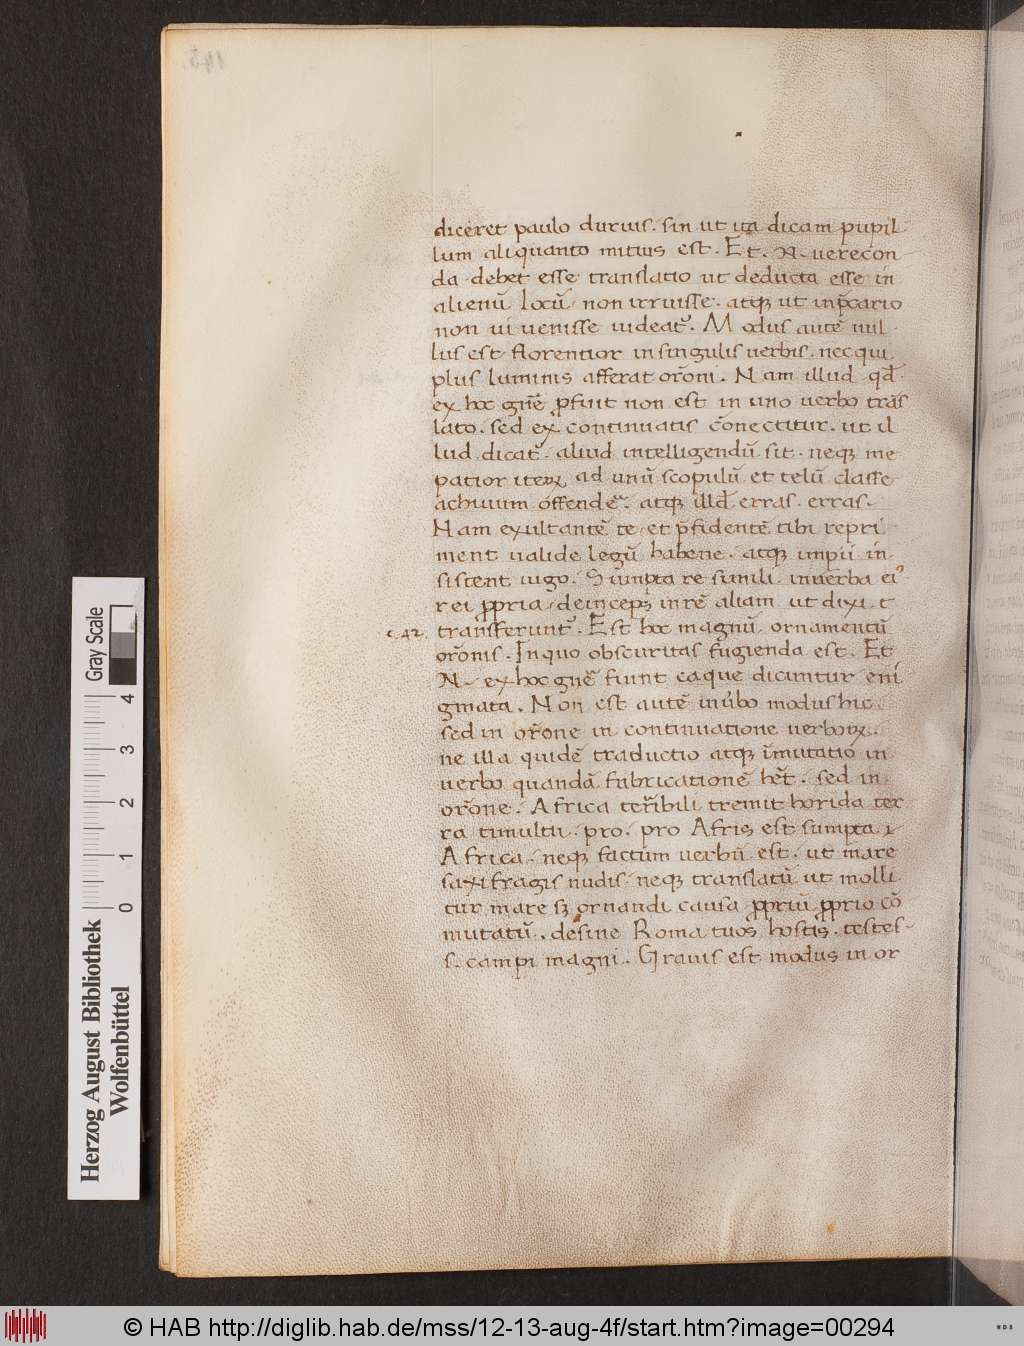 diceret paulo durius. sin ut ita dicam pupil
lum aliquanto mitius est. Et. N. uerecon
da debet esse translatio ut deducta esse in
alienũ locũ non irruisse. atqȝ ut inp̃cario
non ui uenisse uideat᷑. Modus autẽ nul
lus est florentior in singulis uerbis. nec qui
plus luminis afferat or̃oni. Nam illud qd̃
ex hoc gnẽ ꝓfluit non est in uno uerbo trãs
lato. sed ex continuatis cõnectitur. ut il
lud dicat᷑. aliud intelligendũ sit. neqȝ me
patior iteꝝ ad unũ scopulũ et telũ classe
achiuum offendẽ. atqȝ illd̃ erras. erras.
Nam exultantẽ te et p̃fidentẽ tibi repri
ment ualide legũ habene. atqȝ impii in
sistent iugo. Sumpta re simili inuerba ei᷒
rei ꝓpria deinceps inrẽ aliam ut dixi t
c. 42. transferunt᷑. Est hoc magnũ ornamentũ
or̃onis. Inquo obscuritas fugienda est. Et
N. ex hoc gnẽ fiunt ea que dicuntur eni
gmata. Non est autẽ inũbo modus hic
sed in or̃one in continuatione uerboꝝ.
ne illa quidẽ traductio atqȝ ĩmutatio in
uerbo quandã fabricationẽ hẽt. sed in
or̃one. Africa ter̃ibili tremit horida ter
ra tumultu. pro. pro Afris est sumpta
Africa. neqȝ factum uerbũ est. ut mare
saxifragis nudis neqȝ translatũ ut molli
tur mare sȝ ornandi causa ꝓpriũ ꝓprio cõ
mutatũ. desine Roma tuos hostis. testes
s. campi magni. Grauis est modus in or
Herzog August Bibliothek
Wolfenbüttel
Gray Scale
0 1 2 3 4
145.
© HAB http://diglib.hab.de/mss/12-13-aug-4f/start.htm?image=00294